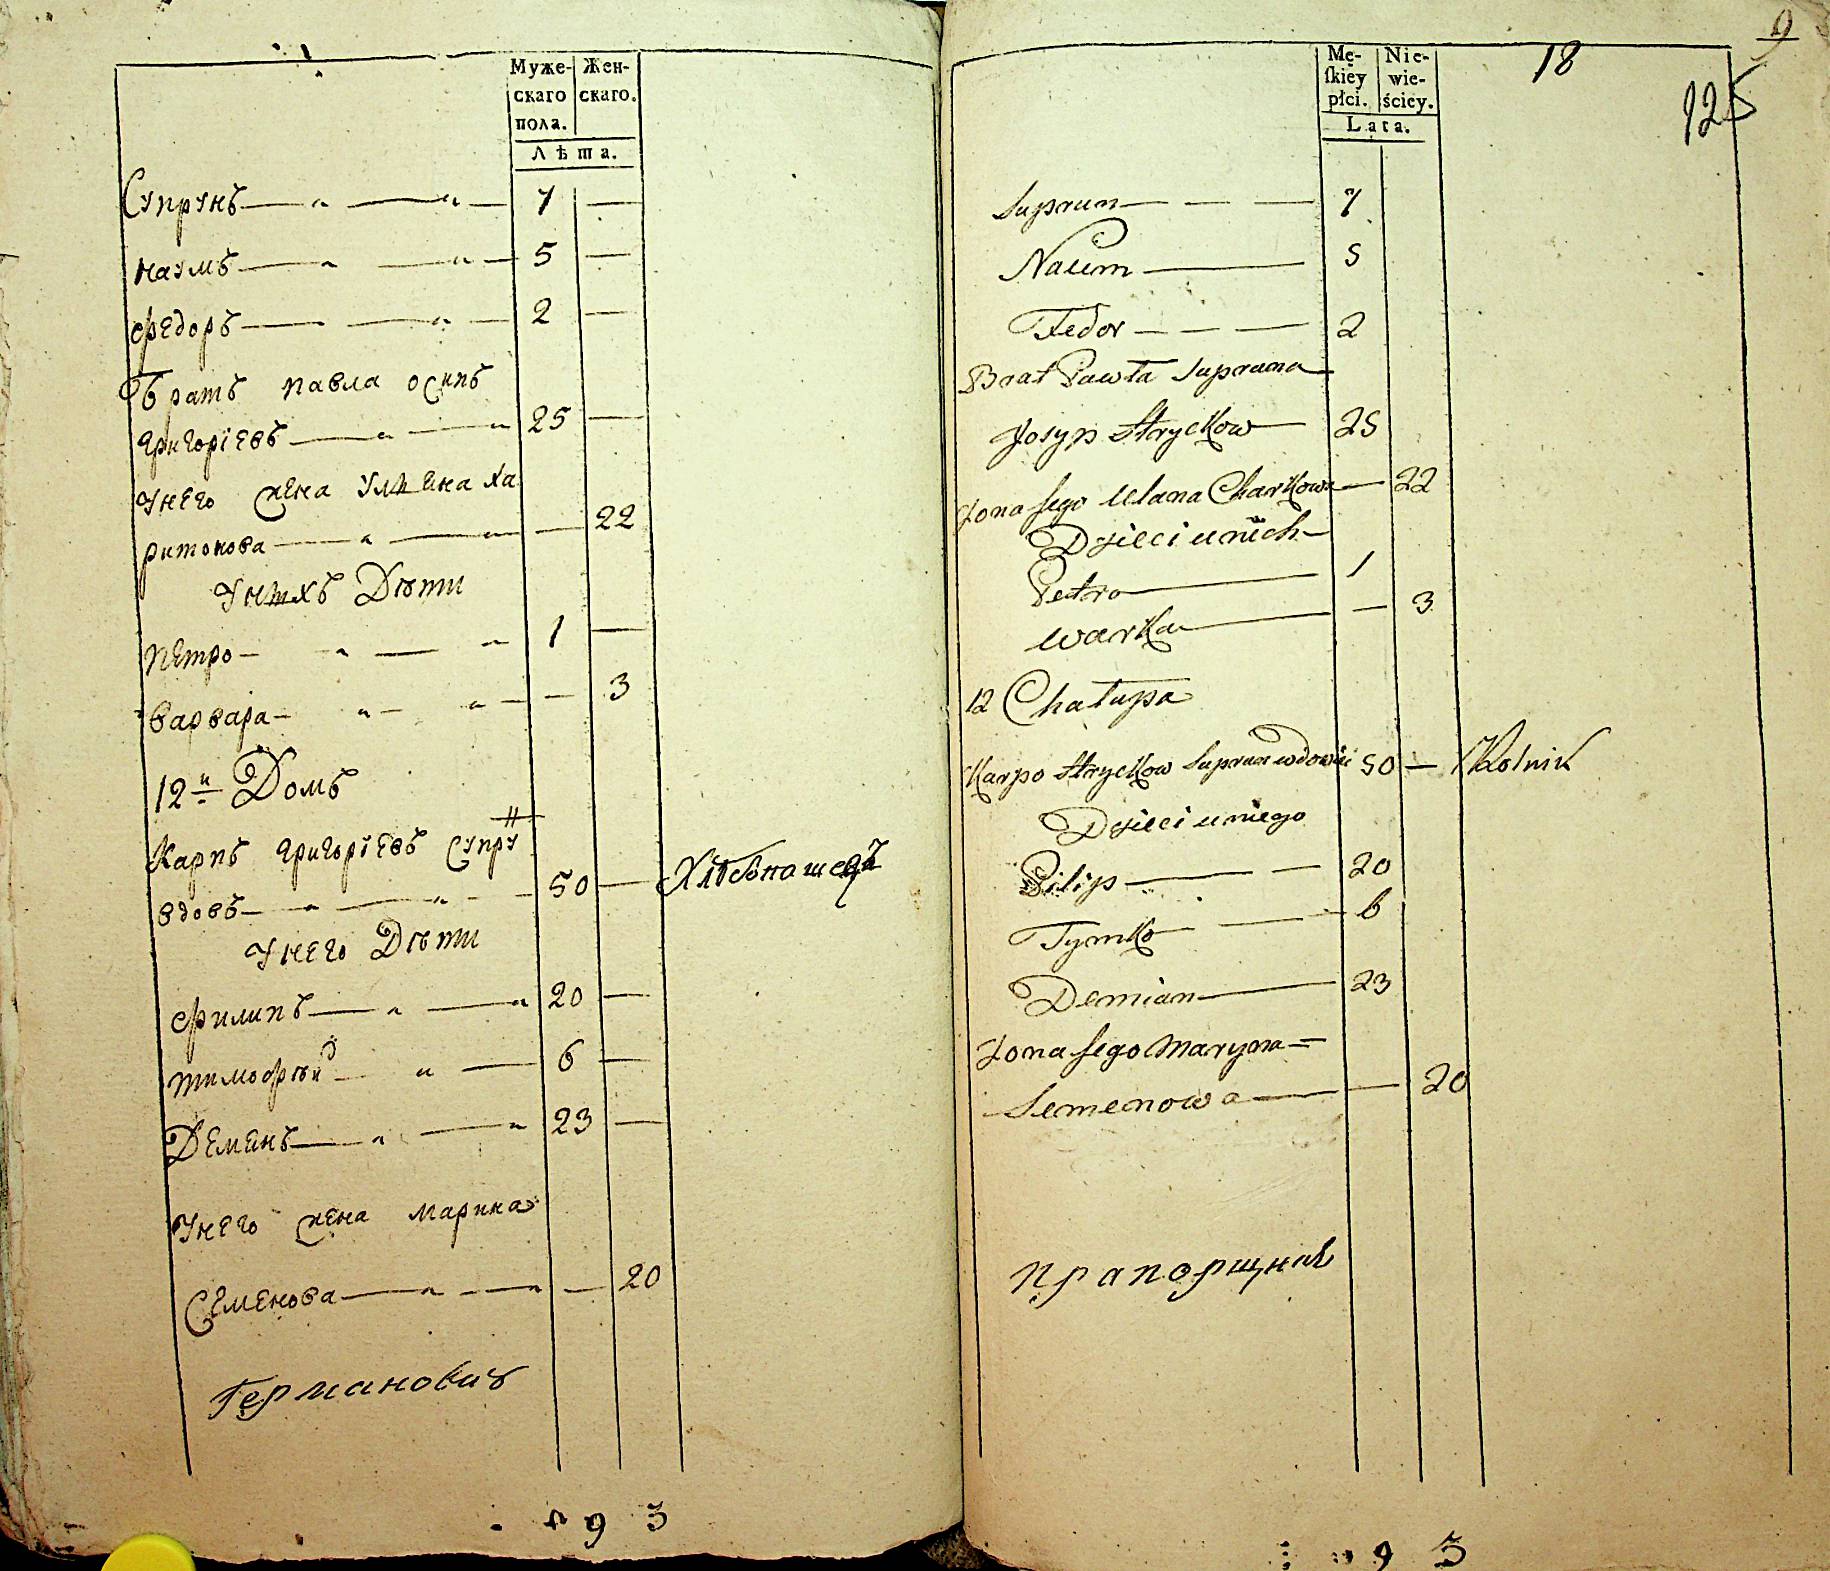 Муже-
скаго
пола.
Жен-
скаго.
Лѣта.
Супрунъ 7 —
наумъ 5 —
федоръ 2 —
Братъ павла осипъ
григоріевъ 25 —
Унего жена Улияна Ха
ритонова — 22
Унихъ Дѣти
Петро 1 —
варвара — 3
12й Домъ
Карпъ григоріевъ супрун
вдовъ 50 — Хлѣбопашецъ
Унего Дѣти
филипъ 20 —
тимофѣй 6 —
Деменъ 23 —
Унего жена марина
Семенова — 20
Германовичъ
93
9
18
125
Mę-
skiey
płci.
Nie-
wie-
ściey.
Lata.
Suprun 7
Naum 5
Fedor 2
Brat Pawła Supruna
Josyp Stryckow 25
Żona jego Ulana Charkowa — 22
Dzieci u nich
Petro 1
Warka — 3
12 Chałupa
Karpo Stryckow Suprun wdowiec 50 — Rolnik
Dzieci u niego
Pilip 20
Tymko 6
Demian 23
Żona jego Maryna
Semenowa — 20
Прапорщикъ
93